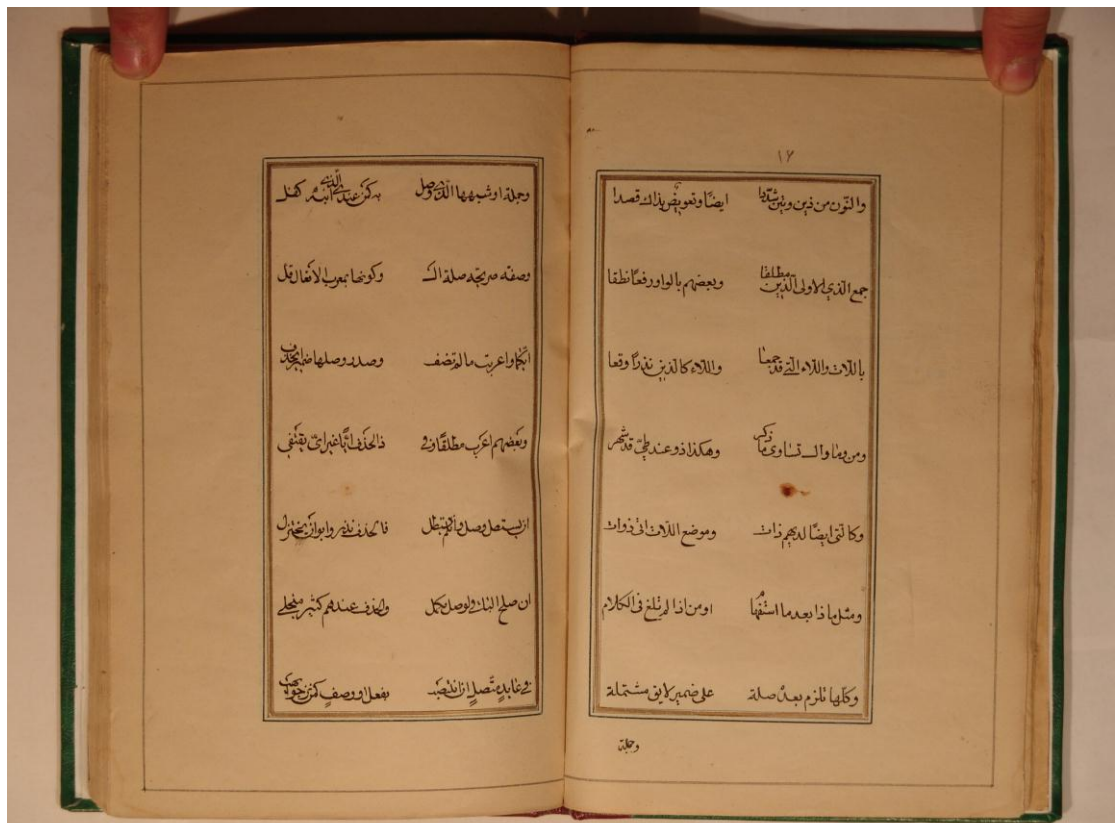 ١٧
والنّون من ذين وتين شدّدا ايضًا وتعويض بذاك قصدا
جمع الّذي الاولى الّذين مطلقا وبعضهم بالواو رفعًا نطقا
باللّات واللّاء الّتي قد جمعا واللّاء كالّذين نذرًا وقعا
ومن وما وال تساوي ما ذكر وهكذا ذو عند طيّ قد شهر
وكالّتي ايضًا لديهم ذات وموضع اللّات اتى ذوات
ومثل ماذا بعد ما استفهام او من اذا لم تلغ في الكلام
وكلّها تلزم بعده صلة على ضمير لايق مشتملة
وجملة
وجملة او شبهها الّذي وصل به كمن عندي الّذي ابنه كفل
وصفة صريحة صلة ال وكونها بمعرب الافعال قل
ايّ كما واعربت ما لم تضف وصدر وصلها ضمير انحذف
وبعضهم اعرب مطلقًا وفي ذا الحذف ايًّا غير ايّ يقتفي
ان يستطل وصل وان لم يستطل فالحذف نذر وابوا ان يختزل
ان صلح الباقي لوصل مكمل والحذف عندهم كثير منجلي
في عايد متّصل ان انتصب بفعل او وصف كمن نرجو يهب